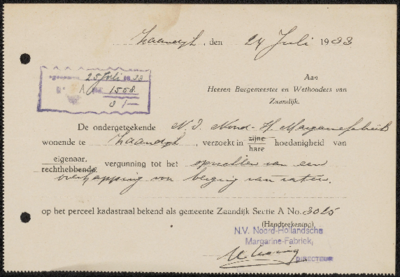 Zaandijk, den 24 Juli 1933
25 Juli 33
A/ 1558.
Aan
Heeren Burgemeester en Wethouders van
Zaandijk.
De ondergeteekende N.V. Noord-H. Margarinefabriek
wonende te Zaandijk, verzoekt in zijne hoedanigheid van
hare
eigenaar,
rechthebbende vergunning tot het oprichten van een
overkapping voor berging van vaten.
op het perceel kadastraal bekend als gemeente Zaandijk Sectie A No. 3025
(Handteekening)
N.V. Noord-Hollandsche
Margarine-Fabriek,
DIRECTEUR